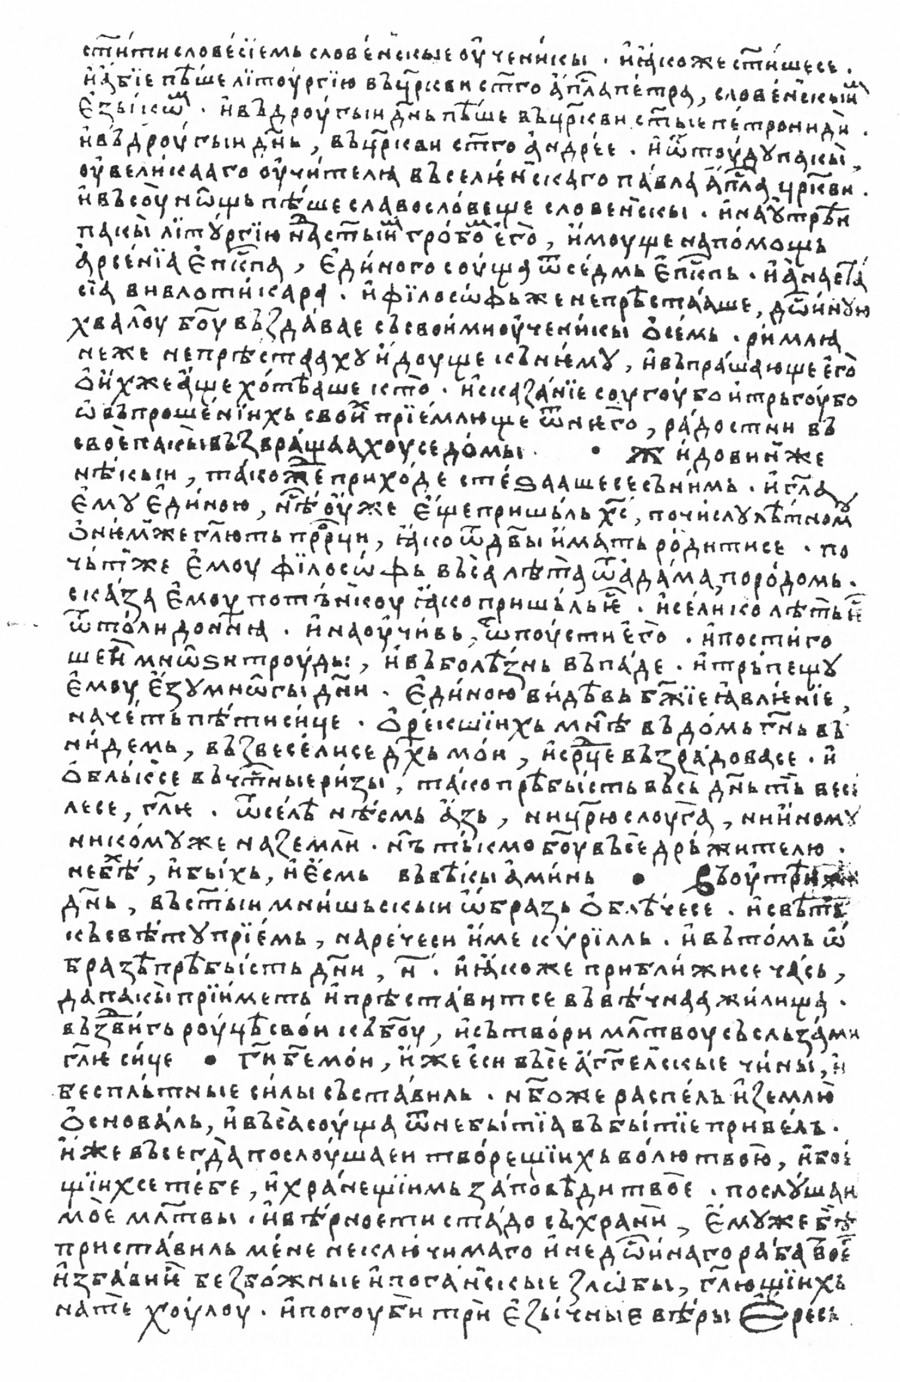 ст҃ити словѐсїемь словѐнскые оу҆чени́кы · и҆ ꙗ҆коже ст҃ише се .
и҆ а҆бїе пѣ́ше лїтоу́ргїю въ цр҃кви ст҃го а҆пл҃а пе́тра, словѐнскыⷨ
е҆зы́кѡⷨ · и҆ въ дроу́гыи дн҃ь пѣ́ше въ цр҃кви ст҃ые петронилы .
и҆ въ дроу́гыи дн҃ь , въ цр҃кви ст҃го а҆ндре́е · и҆ ѿтоу́дꙋ пакы̀ ,
оу҆ вели́кааго оу҆чи́телꙗ въселе́нскаго па́вла а҆пл҃а цр҃кви .
и҆ въсоу̀ но́щь пѣ́ше славосло́веще словѐнскы · и҆ на оу́трѣи
пакы̀ лїтꙋ́ргїю на ст҃ыⷨ гро́боⷨ е҆го̀ , и҆моуще на по́мощь
арсе́нїа е҆пкⷭ҇па , е҆ди́ного соу́ща ѿ се́дмь е҆пкⷭ҇пь · и҆ а҆наста
сїа вивлоти́кара · и҆ фїлосѡ́фь же не прѣста́аше , дⷭ҇ои́нꙋю
хвалоу̀ бг҃оу въздава́е съ свои́ми оу҆чени́кы ѡ҆ се́мь · ри́млꙗ
не же не прѣстааху и҆доуще къ нѐмꙋ , и҆ въпра́шающе е҆го̀
ѡ҆ и҆хже а҆ще хо́тѣаше кто̀ · и҆ сказа́нїе соугоу́бо и҆ трьгоу́бо
ѡ҆ въпроше́нїихь свои́ⷯ прїе́млюще ѿ нѐго , ра́достни въ
своѐ пакы̀ възвраща́ахоу се до́мы · • Жи́довин же
нѣ́кыи , тако́же приходѐ стеѕа́аше се съ ни́мь · и҆ гл҃а
е҆мꙋ е҆ди́ною , нⷭ҇ѣ оу҆ же е҆ще пришь́ль хс҃ , по чи́слꙋ лѣ́тномꙋ
ѡ҆ ни́мже гл҃ють прⷪ҇рци , ꙗ҆ко ѿ дв҃ы и҆мать ро́дити се · по
чьт же е҆моу фїлосѡ́фь въса̀ лѣ́та ѿ ада́ма , по ро́домь ·
сказа́ е҆моу потьнкоу ꙗ҆ко пришь́ль е҆ⷭ҇ · и҆ сели́ко лѣ́ть е҆ⷭ҇
ѿ толи до нн҃ꙗ · и҆ наоу҆чи́вь , ѿпоу́сти е҆го̀ · и҆ пости́го
ше и҆ мнѡ́ѕи троу́ды , и҆ въ болѣ́знь въпа́де · и҆ трь́пещꙋ
е҆моу е҆зꙋ мнѡ́гы дн҃и · е҆ди́ною ви́дѣвь бж҃їе ꙗ҆влѐнїе ,
наче́ть пѣ́ти си́це · ѡ҆ ре́кшїихь мнⷭ҇ѣ въ до́мь гн҃ь въ
ни́демь , възвесе́ли се дх҃ь мо́и , и҆ срⷣце възра́дова се · и҆
ѡ҆бль́к се въ чⷭ҇тныерізы , та́ко прѣбы́сть въсь дн҃ь тъ̀ весе
ле се , гл҃ѥ · ѿсе́лѣ нѣ́смь а҆зь , ни цр҃ю слоуга̀ , ни и҆номꙋ
нико́мꙋже на землѝ · нь̀ тъ́кмо бг҃оу въсе дрьжи́телю ·
не бѣⷯ , и҆ бы́хь , и҆ е҆смь въ вѣ́кы а҆ми́нь • Въ оу́трѣи же
дн҃ь , въ ст҃ыи мни́шьскыи ѡ҆бразь ѡ҆блѣ́че се · и҆ свѣ́ть
къ свѣ́тꙋ прїе́мь , нарече́ си и҆ме кѵ́рїлль · и҆ въ то́мь ѡ҆
бразѣ прѣбы́сть дн҃и , н҃ · и҆ ꙗ҆коже прибли́жи се ча́сь ,
да пакы̀ прїи́меть и҆ прѣста́вит се въ вѣ́чнаа жи́лища ·
въздви́гь роу́цѣ свои къ бг҃оу , и҆ сътвори мл҃твоу съ сльза́ми
гл҃ѥ си́це • Ги҃ бж҃е мои , и҆же е҆си въсѐ а҆гг҃елскые чи́ны , и҆
бесплъ́тные си́лы съста́виль · нб҃о же распе́ль и҆ землю̀
ѡ҆снова́ль , и҆ въса̀ соу́ща ѿ небы́тїа въ бы́тїе приве́дь ·
и҆же въсегда̀ послоу́шаеи творе́щїихь во́лю твою̀ , и҆ бое
щїихсе те́бе , и҆ хране́щїимь за́повѣди твоѐ · послꙋ́шаи
моѐ мл҃твы · и҆ вѣ́рности ста́до съхранѝ , е҆мꙋже бѣ́
приста́виль ме́не неклю́чимаго и҆ недⷭ҇ои́наго раба̀ твое́го
и҆збави и҆ без́бо́жные и҆ пога́нскые зло́бы , гл҃ю́щїихь
на тѐ хоу́лоу · и҆ погоуби̂ три̂ е҆зы́чные вѣ́ры Е҆ресь